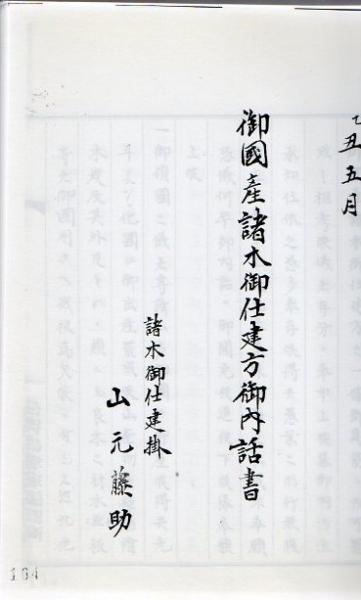 乙丑五月
御國産諸木御仕建方御内話書
諸木御仕建掛
山元藤助
134